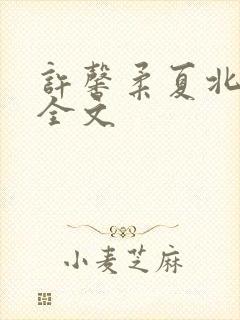 許馨柔夏北
全文
小麦芝麻